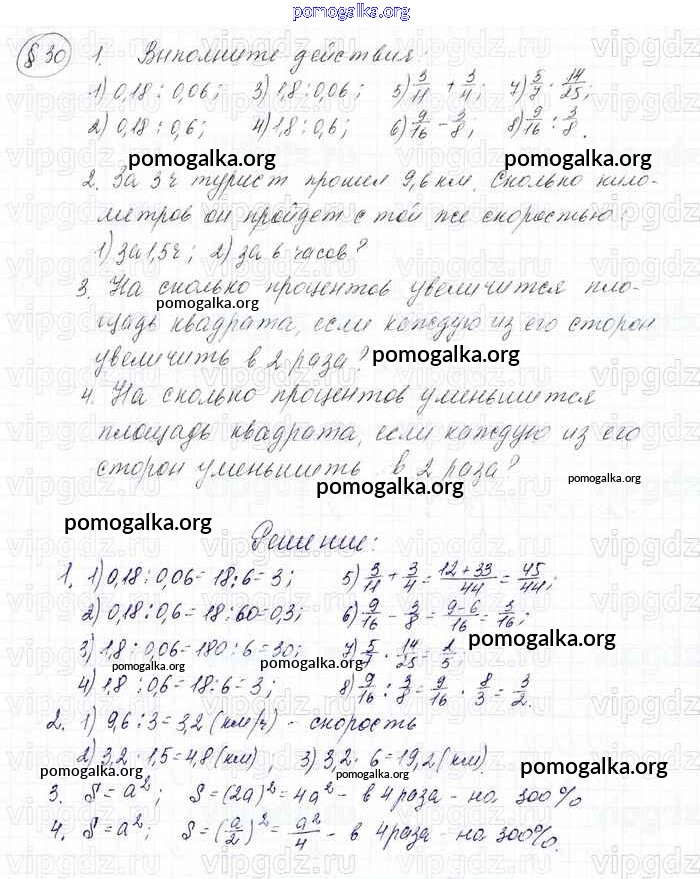 pomogalka.org
§ 30 1. Выполните действия:
1) 0,18 : 0,06; 3) 1,8 : 0,06; 5) 3/11 + 3/4; 7) 5/7 · 14/25;
2) 0,18 : 0,6; 4) 1,8 : 0,6; 6) 9/16 - 3/8; 8) 9/16 : 3/8.
pomogalka.org pomogalka.org
2. За 3 ч турист прошел 9,6 км. Сколько кило-
метров он пройдет с той же скоростью:
1) за 1,5 ч; 2) за 6 часов?
3. На сколько процентов увеличится пло-
pomogalka.org
щадь квадрата, если каждую из его сторон
увеличить в 2 раза?
pomogalka.org
4. На сколько процентов уменьшится
площадь квадрата, если каждую из его
сторон уменьшить в 2 раза?
pomogalka.org
pomogalka.org
pomogalka.org
Решение:
1. 1) 0,18 : 0,06 = 18 : 6 = 3; 5) 3/11 + 3/4 = (12+33)/44 = 45/44;
2) 0,18 : 0,6 = 18 : 60 = 0,3; 6) 9/16 - 3/8 = (9-6)/16 = 3/16;
3) 1,8 : 0,06 = 180 : 6 = 30; 7) 5/7 · 14/25 = 2/5;
pomogalka.org
pomogalka.org pomogalka.org
4) 1,8 : 0,6 = 18 : 6 = 3; 8) 9/16 : 3/8 = 9/16 · 8/3 = 3/2.
2. 1) 9,6 : 3 = 3,2 (км/ч) - скорость
2) 3,2 · 1,5 = 4,8 (км), 3) 3,2 · 6 = 19,2 (км).
pomogalka.org pomogalka.org pomogalka.org
3. S = a²; S = (2a)² = 4a² - в 4 раза - на 300%
4. S = a²; S = (a/2)² = a²/4 - в 4 раза - на 300%.
pomogalka.org pomogalka.org